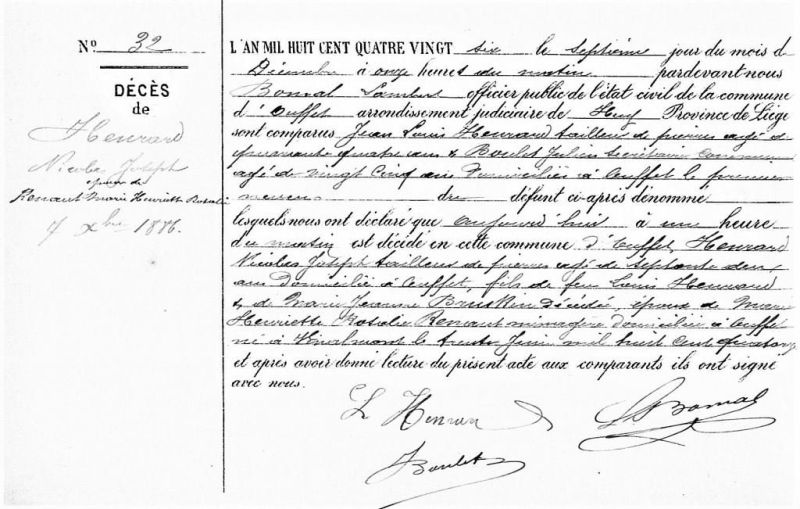 N° 32
DÉCÈS
de
Henrard
Nicolas Joseph
époux de
Renaut Marie Henriette Rosalie
7 Xbre 1886.
L'AN MIL HUIT CENT QUATRE VINGT six le septième jour du mois d
Décembre à onze heures du matin pardevant nous
Bomal Lambert officier public de l'état civil de la commune
d'Ouffet arrondissement judiciaire de Huy Province de Liége
sont comparés Jean Louis Henrard tailleur de pierres agé de
quarante quatre ans & Boulet Julien secrétaire communal
agé de vingt cinq ans Domiciliés à Ouffet le premier
neveu du défunt ci-après dénommé
lesquels nous ont déclaré que aujourd'hui à une heure
du matin est décédé en cette commune d'Ouffet Henrard
Nicolas Joseph tailleur de pierres agé de septante deux
ans domicilié à Ouffet, fils de feu Louis Henrard
& de Marie Jeanne Décédée, époux de Marie
Henriette Rosalie Renaut ménagère domiciliée à Ouffet
né à le trente Juin mil huit cent quatorze
et après avoir donné lecture du présent acte aux comparants ils ont signé
avec nous.
L Henrard
L Bomal
Boulet